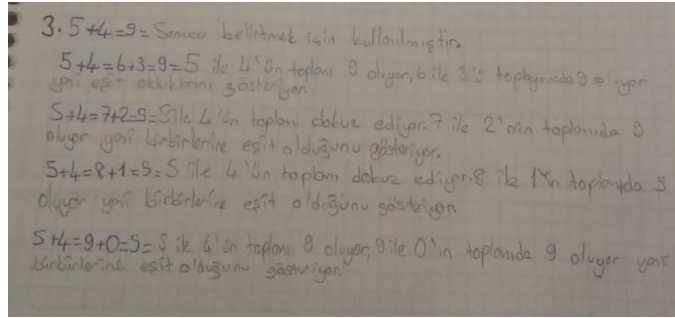 3. 5+4=9= Sonucu belirtmek için kullanılmıştır.
5+4=6+3=9=5 ile 4'ün toplamı 9 oluyor, 6 ile 3'ü toplayınca da 9 oluyor
yani eşit olduklarını gösteriyor.
5+4=7+2=9=5 ile 4'ün toplamı dokuz ediyor. 7 ile 2'nin toplamıda 9
oluyor yani birbirlerine eşit olduğunu gösteriyor.
5+4=8+1=9=5 ile 4'ün toplamı dokuz ediyor. 8 ile 1'in toplamıda 9
oluyor yani birbirlerine eşit olduğunu gösteriyor.
5+4=9+0=9=5 ile 4'ün toplamı 9 oluyor, 9 ile 0'ın toplamıda 9 oluyor yani
birbirlerine eşit olduğunu gösteriyor.